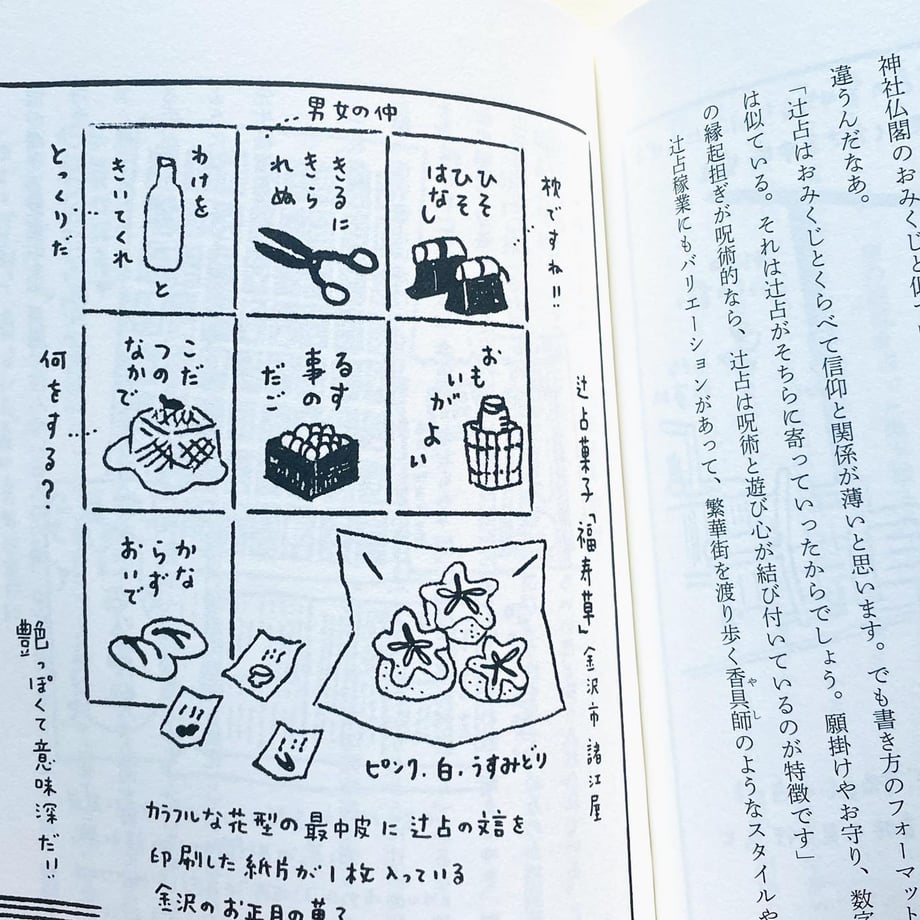 神社仏閣のおみくじと
違うんだなあ。
「辻占はおみくじとくらべて信仰と関係が薄いと思います。でも書き方のフォーマット
は似ている。それは辻占がそちらに寄っていったからでしょう。願掛けやお守り、数字
の縁起担ぎが呪術的なら、辻占は呪術と遊び心が結び付いているのが特徴です」
辻占稼業にもバリエーションがあって、繁華街を渡り歩く香具師のようなスタイルや
やし
辻占菓子「福寿草」金沢市 諸江屋
男女の仲
枕ですね!!
ひそ
ひそ
はなし
きるに
きら
れぬ
わけを
きいてくれ
と
とっくりだ
おもい
がよい
るす
事の
だご
こだ
つの
なかで
何をする?
かな
らず
おいで
艶っぽくて意味深だ!!
ピンク、白、うすみどり
カラフルな花型の最中皮に辻占の文言を
印刷した紙片が1枚入っている
金沢のお正月の菓子